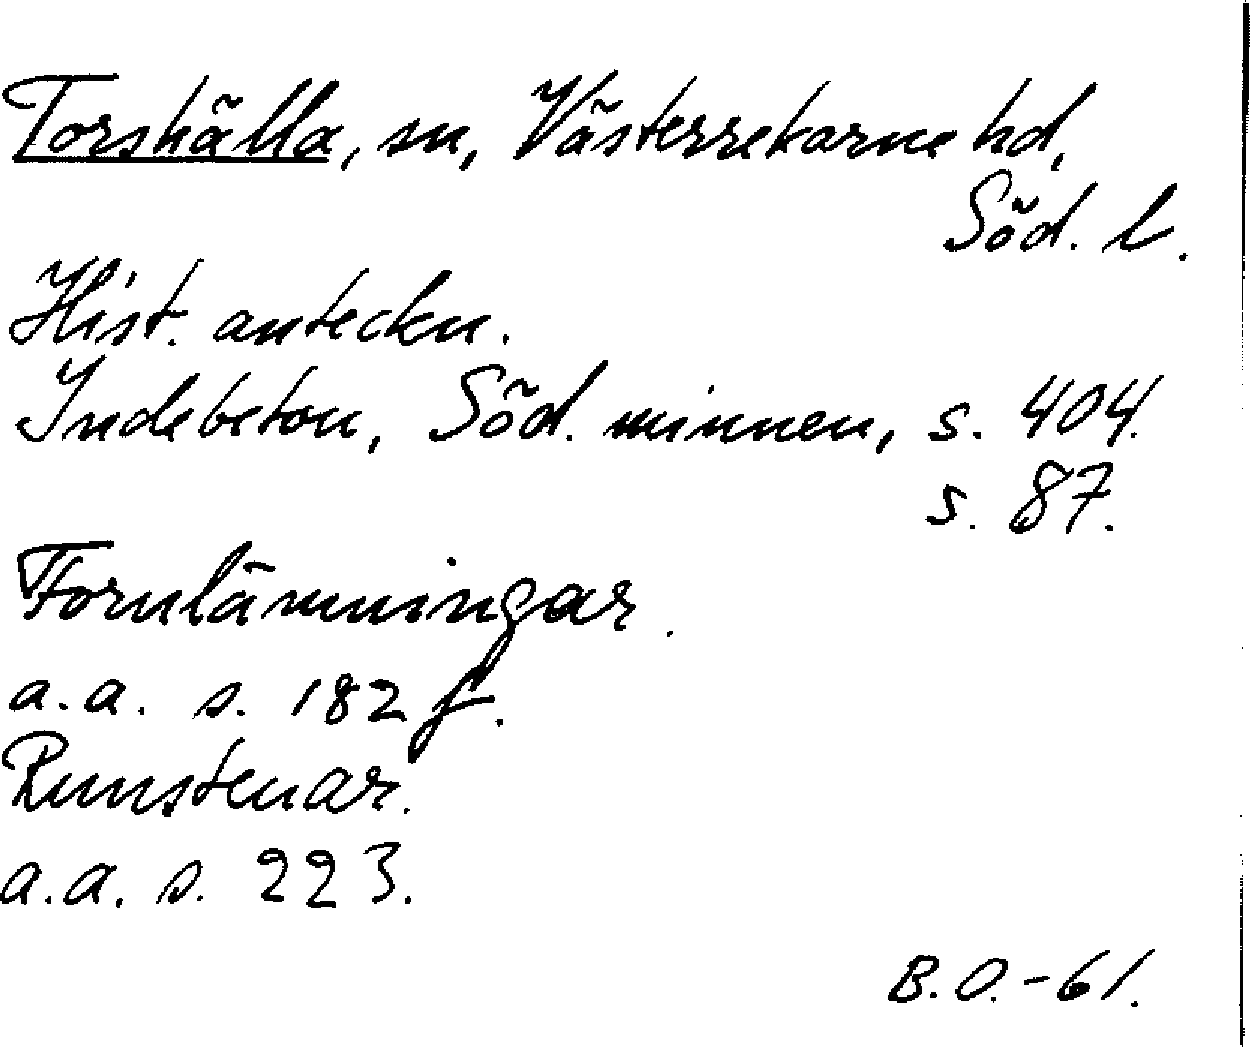 Torshälla, sn, Västerrekarne hd,
Söd. l.
Hist. anteckn.
Indebetou, Söd. minnen, s. 404.
s. 87.
Fornlämningar.
a.a. s. 182 f.
Runstenar.
a.a. s. 223.
B.O.-61.